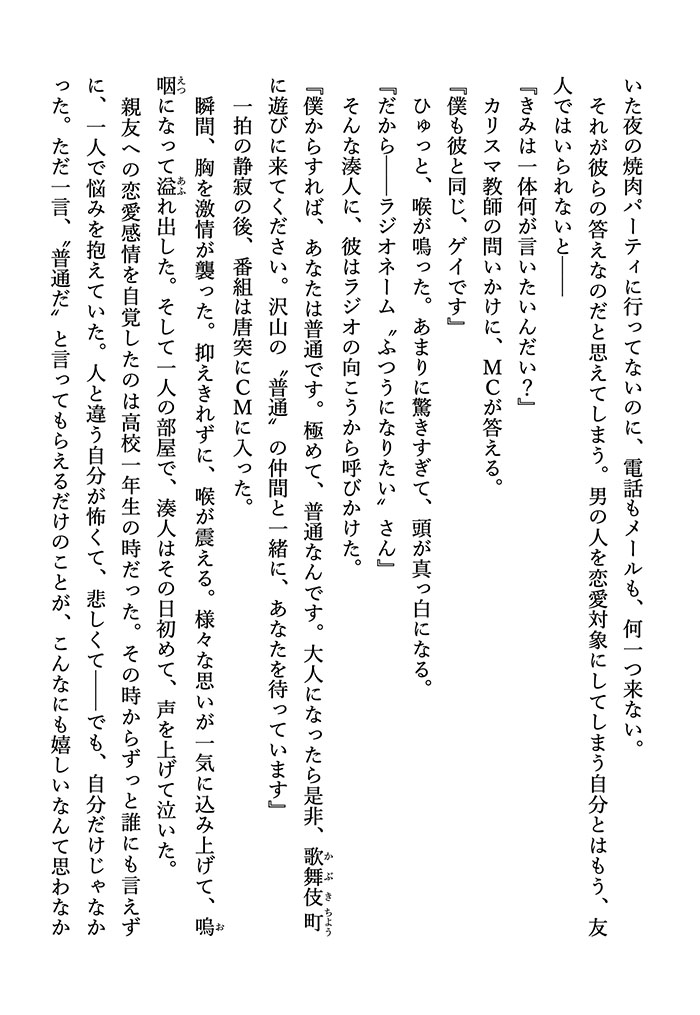 いた夜の焼肉パーティに行ってないのに、電話もメールも、何一つ来ない。
それが彼らの答えなのだと思えてしまう。男の人を恋愛対象にしてしまう自分とはもう、友
人ではいられないと――
『きみは一体何が言いたいんだい？』
カリスマ教師の問いかけに、ＭＣが答える。
『僕も彼と同じ、ゲイです』
ひゅっと、喉が鳴った。あまりに驚きすぎて、頭が真っ白になる。
『だから――ラジオネーム〝ふつうになりたい〟さん』
そんな湊人に、彼はラジオの向こうから呼びかけた。
『僕からすれば、あなたは普通です。極めて、普通なんです。大人になったら是非、歌舞伎町
に遊びに来てください。沢山の〝普通〟の仲間と一緒に、あなたを待っています』
一拍の静寂の後、番組は唐突にＣＭに入った。
瞬間、胸を激情が襲った。抑えきれずに、喉が震える。様々な思いが一気に込み上げて、嗚
咽になって溢れ出した。そして一人の部屋で、湊人はその日初めて、声を上げて泣いた。
親友への恋愛感情を自覚したのは高校一年生の時だった。その時からずっと誰にも言えず
に、一人で悩みを抱えていた。人と違う自分が怖くて、悲しくて――でも、自分だけじゃなか
った。ただ一言、〝普通だ〟と言ってもらえるだけのことが、こんなにも嬉しいなんて思わなか